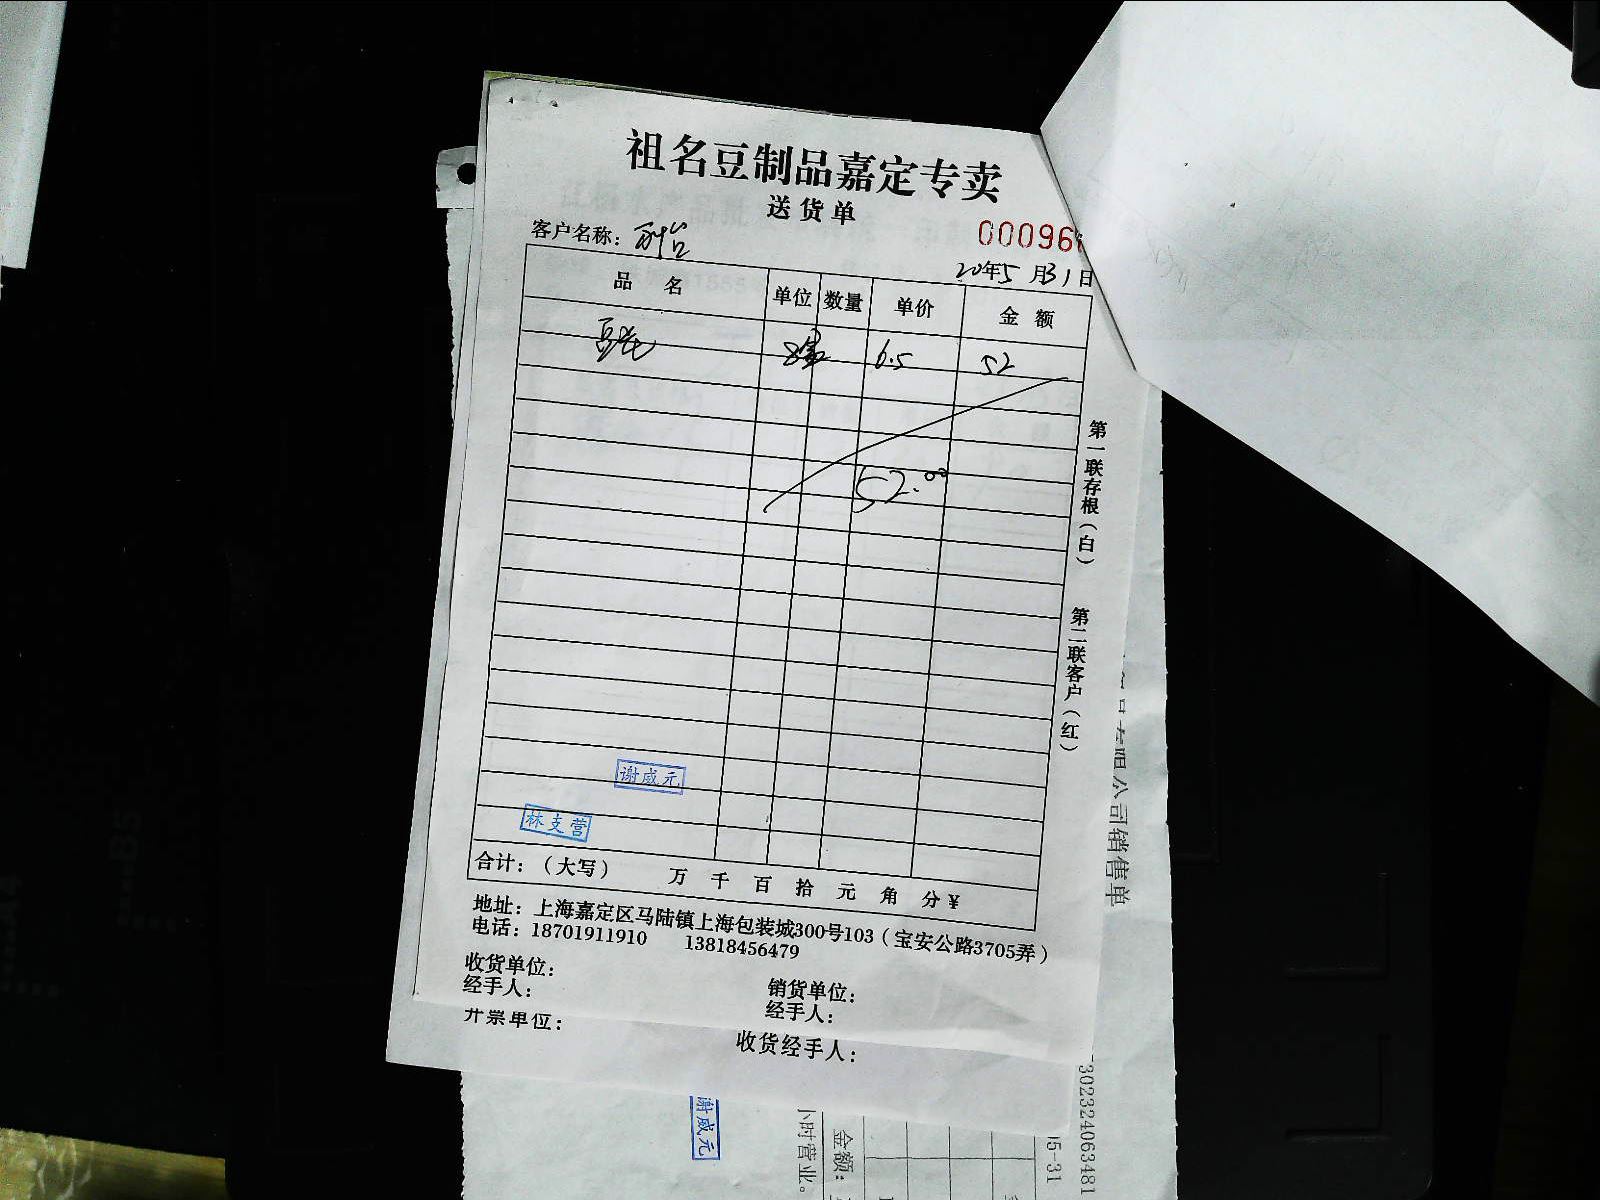 祖名豆制品嘉定专卖
送货单
客户名称：
00096
20年5月31日
品名 单位 数量 单价 金额
6.5 52
52.00
第一联存根（白）
第二联客户（红）
谢成元
林支营
合计：（大写） 万 千 百 拾 元 角 分 ¥
地址：上海嘉定区马陆镇上海包装城300号103（宝安公路3705弄）
电话：18701911910 13818456479
收货单位：
经手人：
销货单位：
经手人：
开票单位：
收货经手人：
限公司销售单
谢成元
小时营业。
金额：
05-31
302324063481